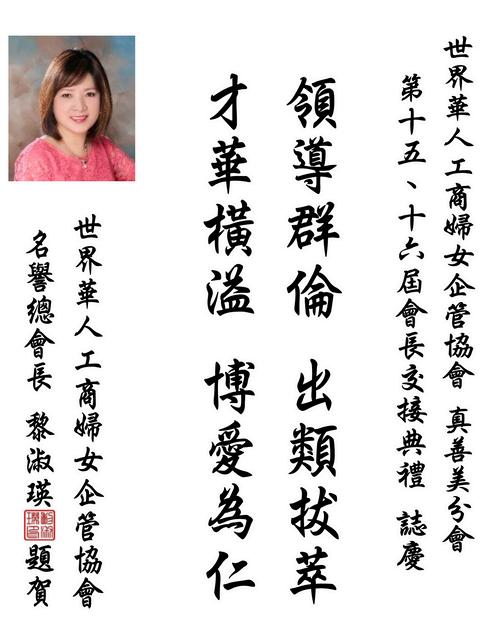 世界華人工商婦女企管協會 真善美分會
第十五、十六屆會長交接典禮 誌慶
領導群倫 出類拔萃
才華橫溢 博愛為仁
世界華人工商婦女企管協會
名譽總會長 黎淑瑛 題賀